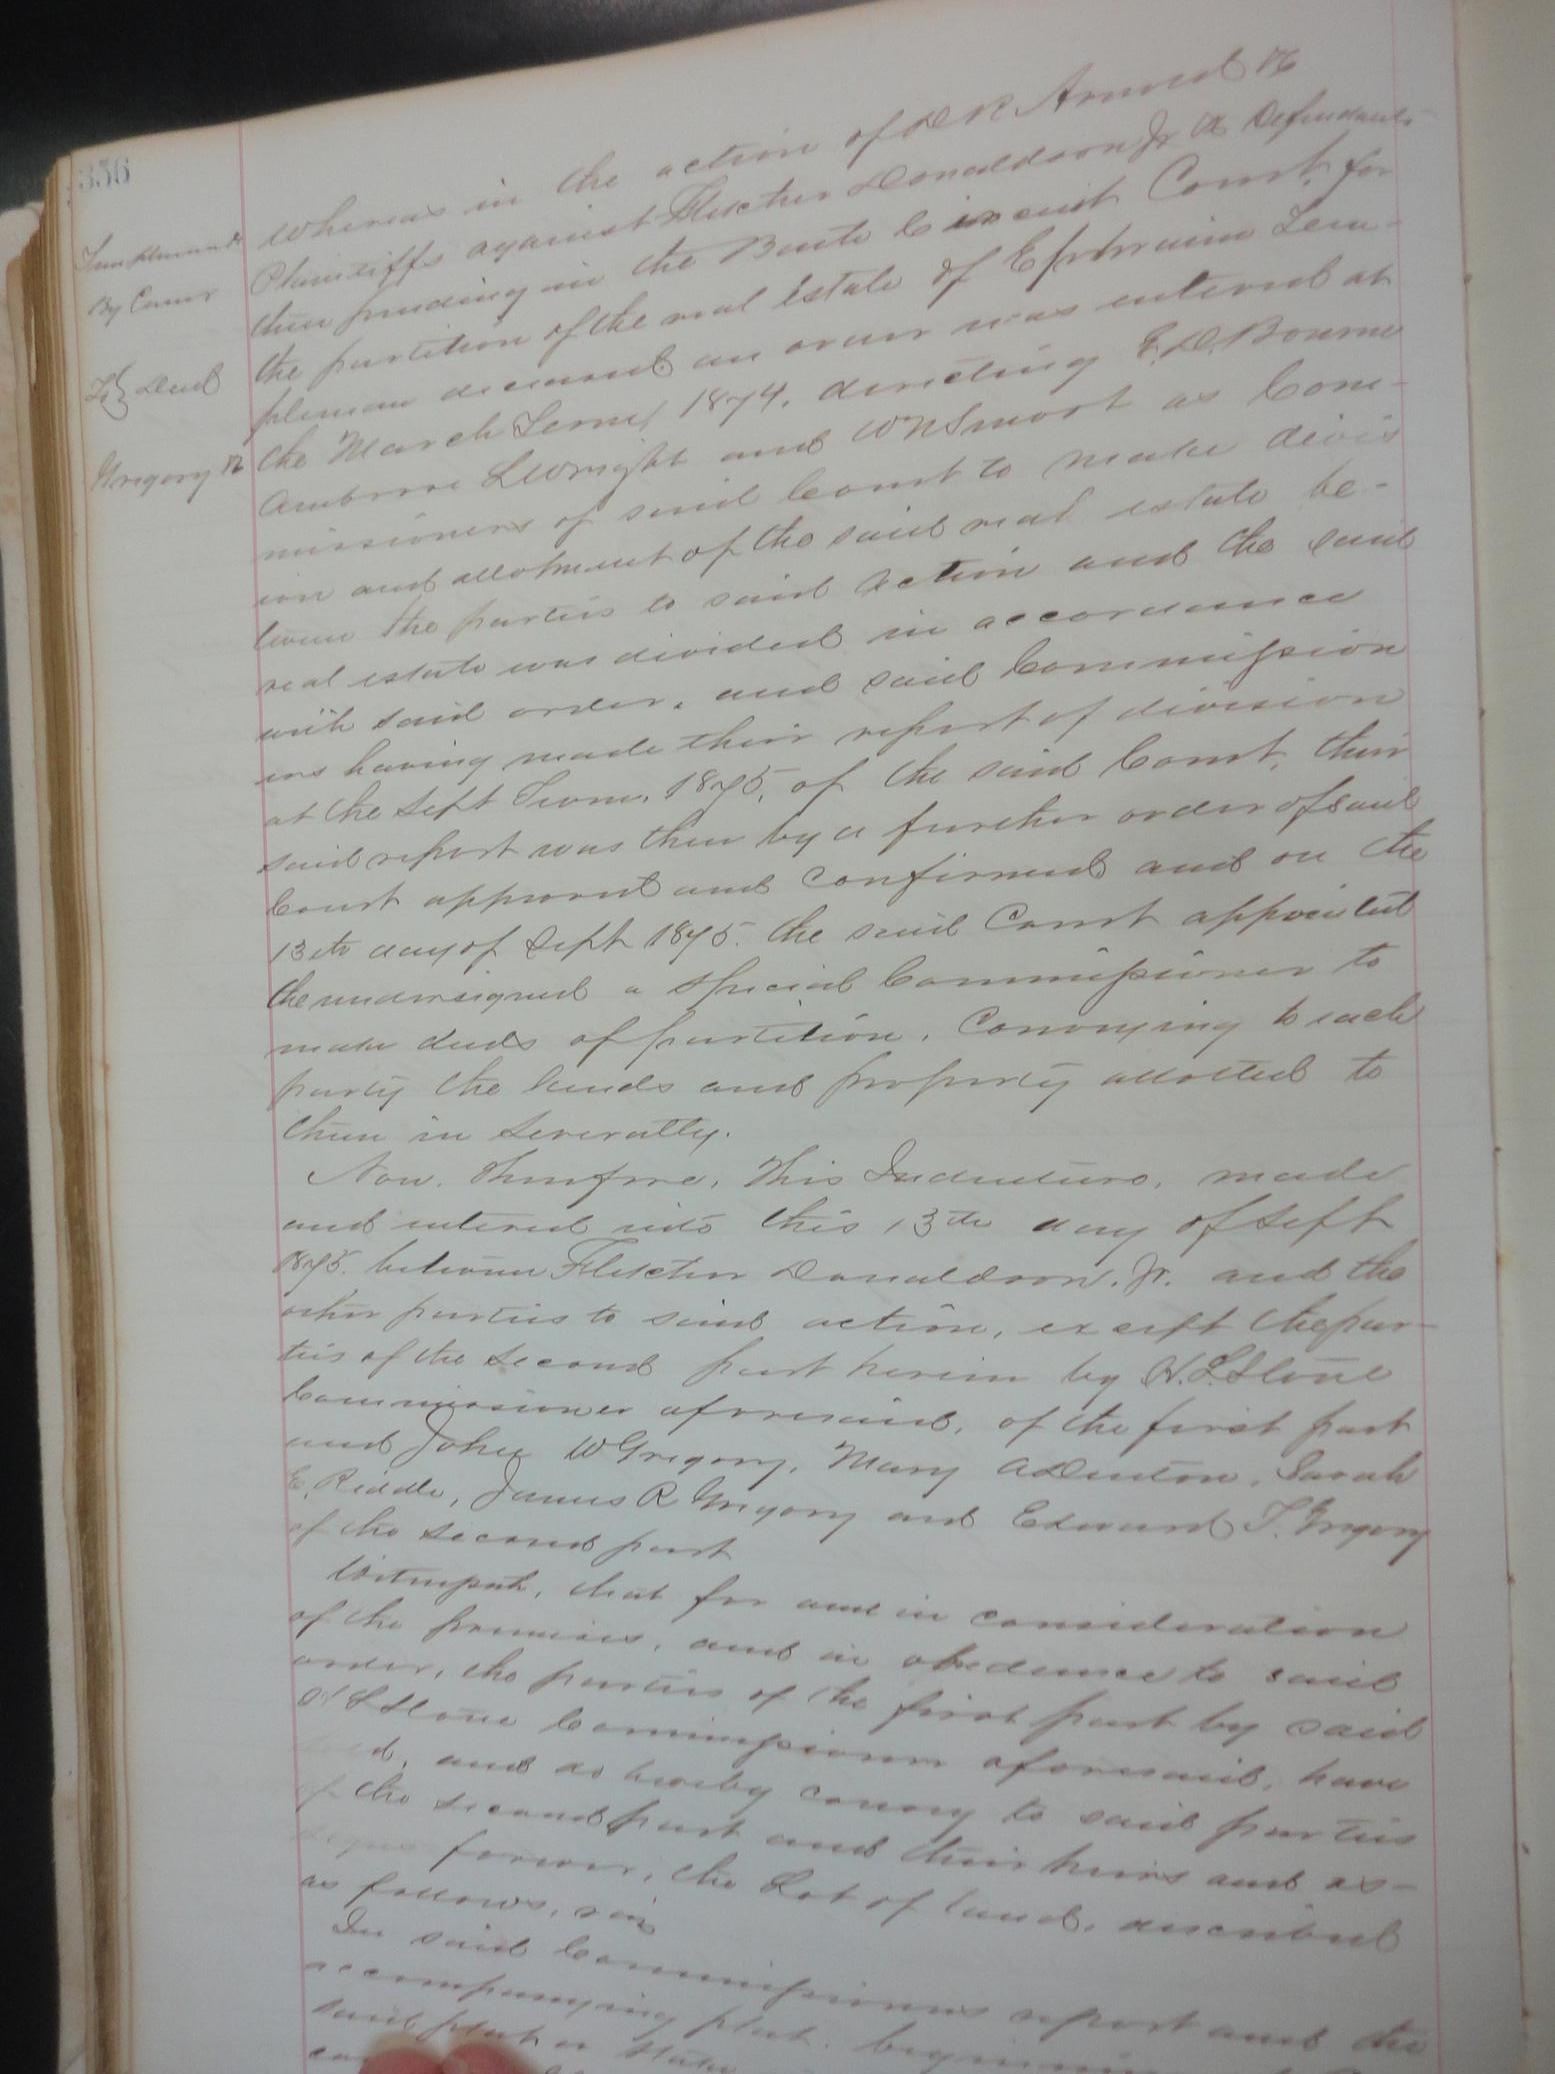 356
Templeman
By Comr
To } Deed
Gregory &c
Whereas in the action of D R Arnold &c
Plaintiffs against Fletcher Donaldson Jr &c Defendants
then pending in the Circuit Court, for
the partition of the real Estate of Ephraim Tem-
pleman deceased an order was entered at
the March Term 1874, directing E. D. Bourne
Ambrose L Wright and W N Smoot as Com-
missioners of said Court to make divis
ion and allotment of the said real estate be-
tween the parties to said action and the said
real estate was divided in accordance
with said order, and said Commission
ers having made their report of division
at the Sept Term, 1875, of the said Court, their
said report was then by a further order of said
Court approved and confirmed and on the
13th day of Sept 1875. the said Court appointed
the undersigned a Special Commissioner to
make deeds of partition, Conveying to each
party the lands and property allotted to
them in severalty.
Now, Therefore, This Indenture, made
and entered into this 13th day of Sept
1875. between Fletcher Donaldson, Jr. and the
other parties to said action, except the par-
ties of the second part herein by H. L. Stone
Commissioner aforesaid, of the first part
and John W Gregory, Mary A Denton, Sarah
E. Riddle, James R Gregory and Edward T. Gregory
of the second part
Witnesseth, that for and in consideration
of the premises, and in obedience to said
order, the parties of the first part by said
H L Stone Commissioner aforesaid, have
and do hereby convey to said parties
of the second part and their heirs and as-
signs forever, the Lot of land, described
as follows, viz
In said Commissioners report and the
accompanying plat. beginning
said plat a stake